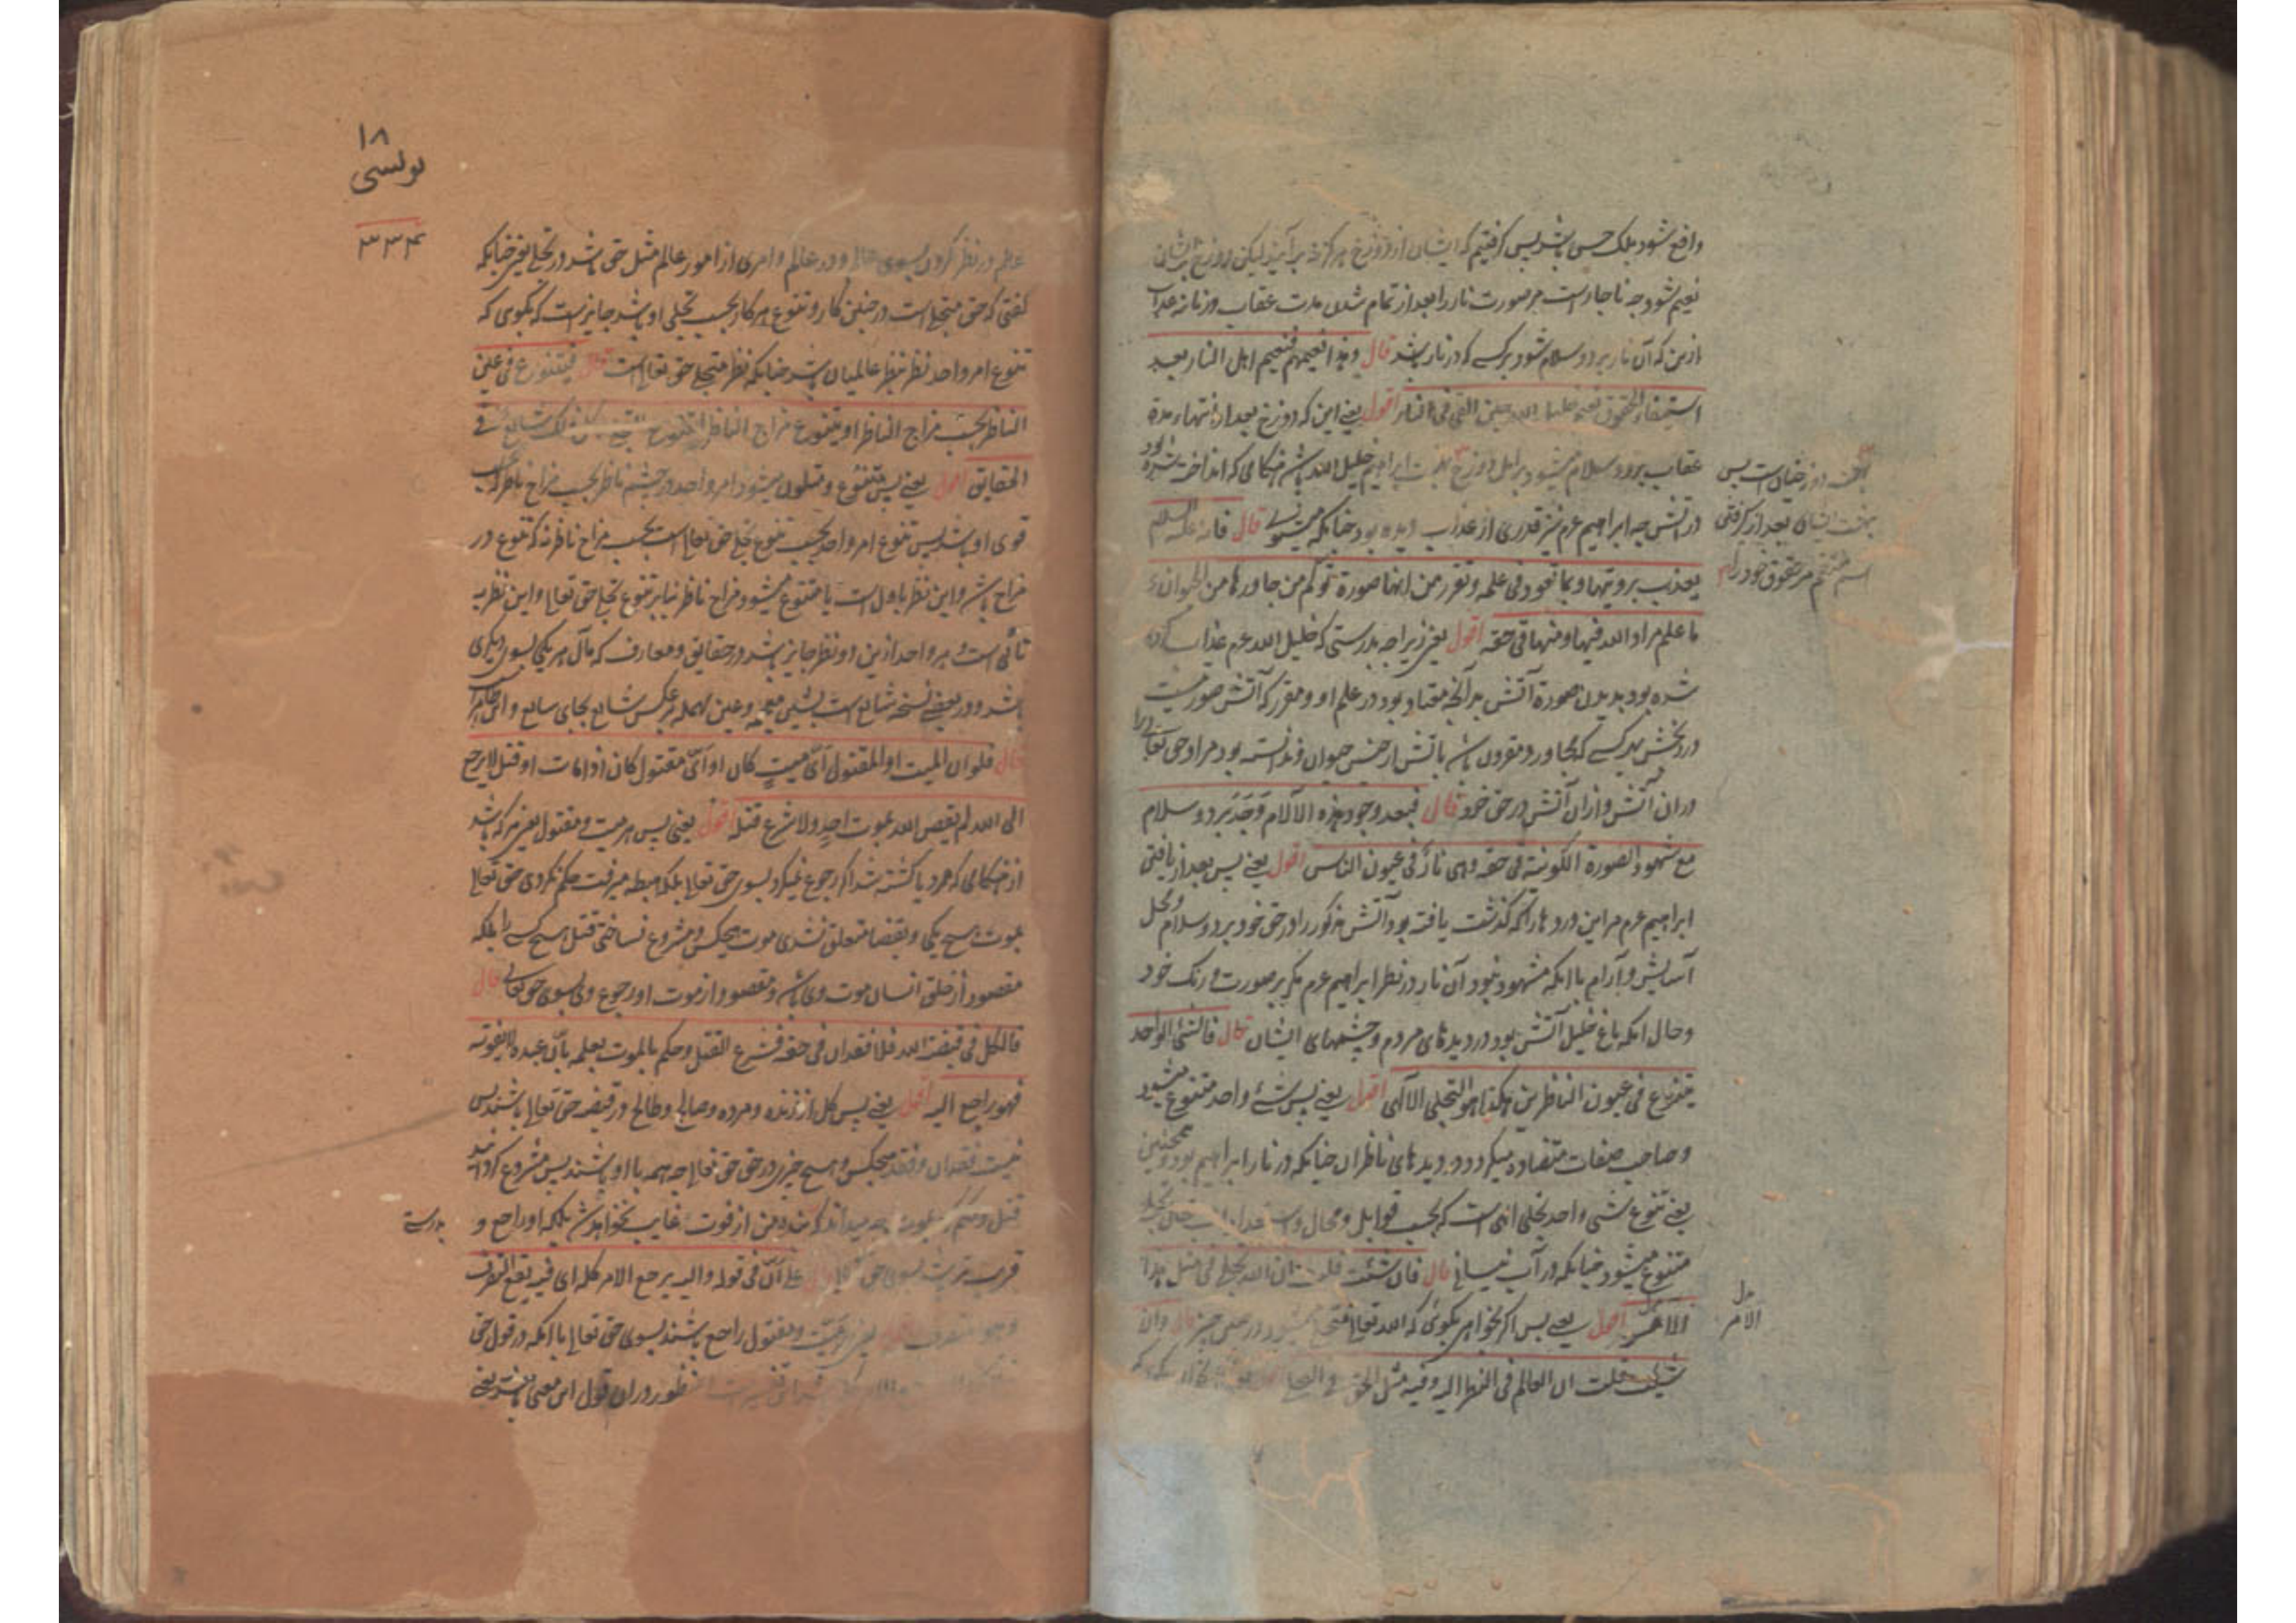 واقع شود بلک حس باشد پس گرفتیم که ایشان از دوزخ هرگز نه برآیند لیکن دوزخ بر ایشان
نعیم شود چه ناچار است مر صورت نار را بعد از تمام شدن مدت عقاب در زمانه عذاب
ازین که آن نار برد و سلام شود بر کسی که در نار باشد قال وهذا نعیمهم فنعیم اهل النار بعد
استیفاء الحقوق نعیم خلیل الله حین القی فی النار اقول یعنی این که دوزخ بعد از انتهاء مدة
عقاب برد و سلام میشود بر اهل دوزخ ابراهیم خلیل الله باشد هنگامی که انداخته شده بود
در آتش چه ابراهیم عم نیز قدری از عذاب دیده بود چنانکه میگوید قال فانه علیه السلام
یعذب برویتها وبما تعود فی علمه وتقرر من انها صورة تولم من جاورها من الحیوان و
ما علم مراد الله فیها ومنها فی حقه اقول یعنی زیرا چه بدرستی که خلیل الله عم عذاب کرده
شده بود بدیدن صورة آتش بدانچه معتاد بود در علم او و مقرر که آتش صورتیست
درد بخش مر کسی که مجاور و مقرون باشد بآتش از جنس حیوان و ندانسته بود مراد حق تعالی را
در آن آتش و از آن آتش در حق خود قال فبعد وجود هذه الآلام وجد برد و سلام
مع شهود الصورة الکونیة فی حقه وهی نار فی عیون الناس اقول یعنی پس بعد از یافتن
ابراهیم عم مر این درد ها را که گذشت یافته بود آتش مذکور را در حق خود برد و سلام و محل
آسایش و آرام با آنکه مشهود نبود آن نار در نظر ابراهیم عم مگر بر صورت و رنگ خود
و حال آنکه باغ خلیل آتش بود در دید های مردم و چشمهای ایشان قال فالشیء الواحد
یتنوع فی عیون الناظرین هکذا هو التجلی الالهی اقول یعنی پس شیء واحد متنوع میشود
و صاحب صفات متضاده میگردد در دید های ناظران چنانکه در نار ابراهیم بود و همچنین
یعنی تنوع شیء واحد تجلی الهی است که بحسب قوابل و محال و استعدادات
متنوع میشود چنانکه در آب قال فان شئت قلت ان الله تجلی فی مثل هذا
الامر اقول یعنی پس اگر بخواهی بگوئی که الله تعالی متجلی میشود در چنین چیز قال وان
شئت قلت ان العالم فی النظر الیه وفیه مثل الحق فی التجلی
پس
بعد از گرفتن
اسم منتقم مر حقوق خود را
بدل
الامر
١٨
یونسی
٣٣٤
علم در نظر کردن بسوی عالم و در عالم و امری از امور عالم مثل حق باشد در تجلی یعنی چنانکه
گفتی که حق متجلی است در چنین کار و تنوع هر کار بحسب تجلی او باشد جایز است که بگوی که
تنوع امر واحد نظر بنظر عالمیان باشد چنانکه نظر متجلی حق تعالی است قال فیتنوع فی عین
الناظر بحسب مزاج الناظر او یتنوع مزاج الناظر لتنوع التجلی وکل ذلک شائع فی
الحقایق اقول یعنی پس متنوع و متلون میشود امر واحد در چشم ناظر بحسب مزاج ناظر
قوی او باشد پس تنوع امر واحد بحسب تنوع تجلی حق تعالی است بحسب مزاج ناظر نه که تنوع در
مزاج باشد و این نظر باول است یا متنوع میشود مزاج ناظر بنابر تنوع تجلی حق تعالی و این نظر به
ثانی است و هر واحد ازین دو نظر جایز باشد در حقایق و معارف که مآل هر یکی بسوی دیگری
باشد و در بعضی نسخه شایع است بشین معجمه و عین مهمله بر عکس شایع بجای سایغ و این ظاهر است
قال فلو ان المیت او المقتول ای میت کان او ای مقتول کان اذا مات او قتل لا یرجع
الی الله لم یقض الله بموت احد ولا شرع قتله اقول یعنی پس هر میت و مقتول یعنی هر که باشد
از هنگامی که مرد یا کشته شد اگر رجوع نمیکرد بسوی حق تعالی بلکه میرفت حکم نکردی حق تعالی
بموت هیچ یکی و بقضا متعلق نشدی موت هیچکس و مشروع نساختی قتل هیچ کسی را بلکه
مقصود از خلق انسان موت وی باشد و مقصود از موت او رجوع وی بسوی حق تعالی قال
فالکل فی قبضته فلا فقدان فی حقه فشرع القتل وحکم بالموت بعلمه بان عبده لا یفوته
فهو راجع الیه اقول یعنی پس کل از زنده و مرده و صالح و طالح در قبضه حق تعالی باشند پس
نیست فقدان و فقد هیچکس و هیچ چیز در حق حق تعالی چه همه با او باشند پس مشروع کرد
قتل و حکم بموت چه میداند که بنده من از فوت و غایب نخواهد شد بلکه او راجع و
قریب تریست بسوی حق تعالی قال علی ان فی قوله والیه یرجع الامر کله ای فیه یقع التصرف
وهو المتصرف اقول یعنی میت و مقتول راجع باشند بسوی حق تعالی با آنکه در قول حق
منظور در آن قول این معنی باشد یعنی
بدرستی